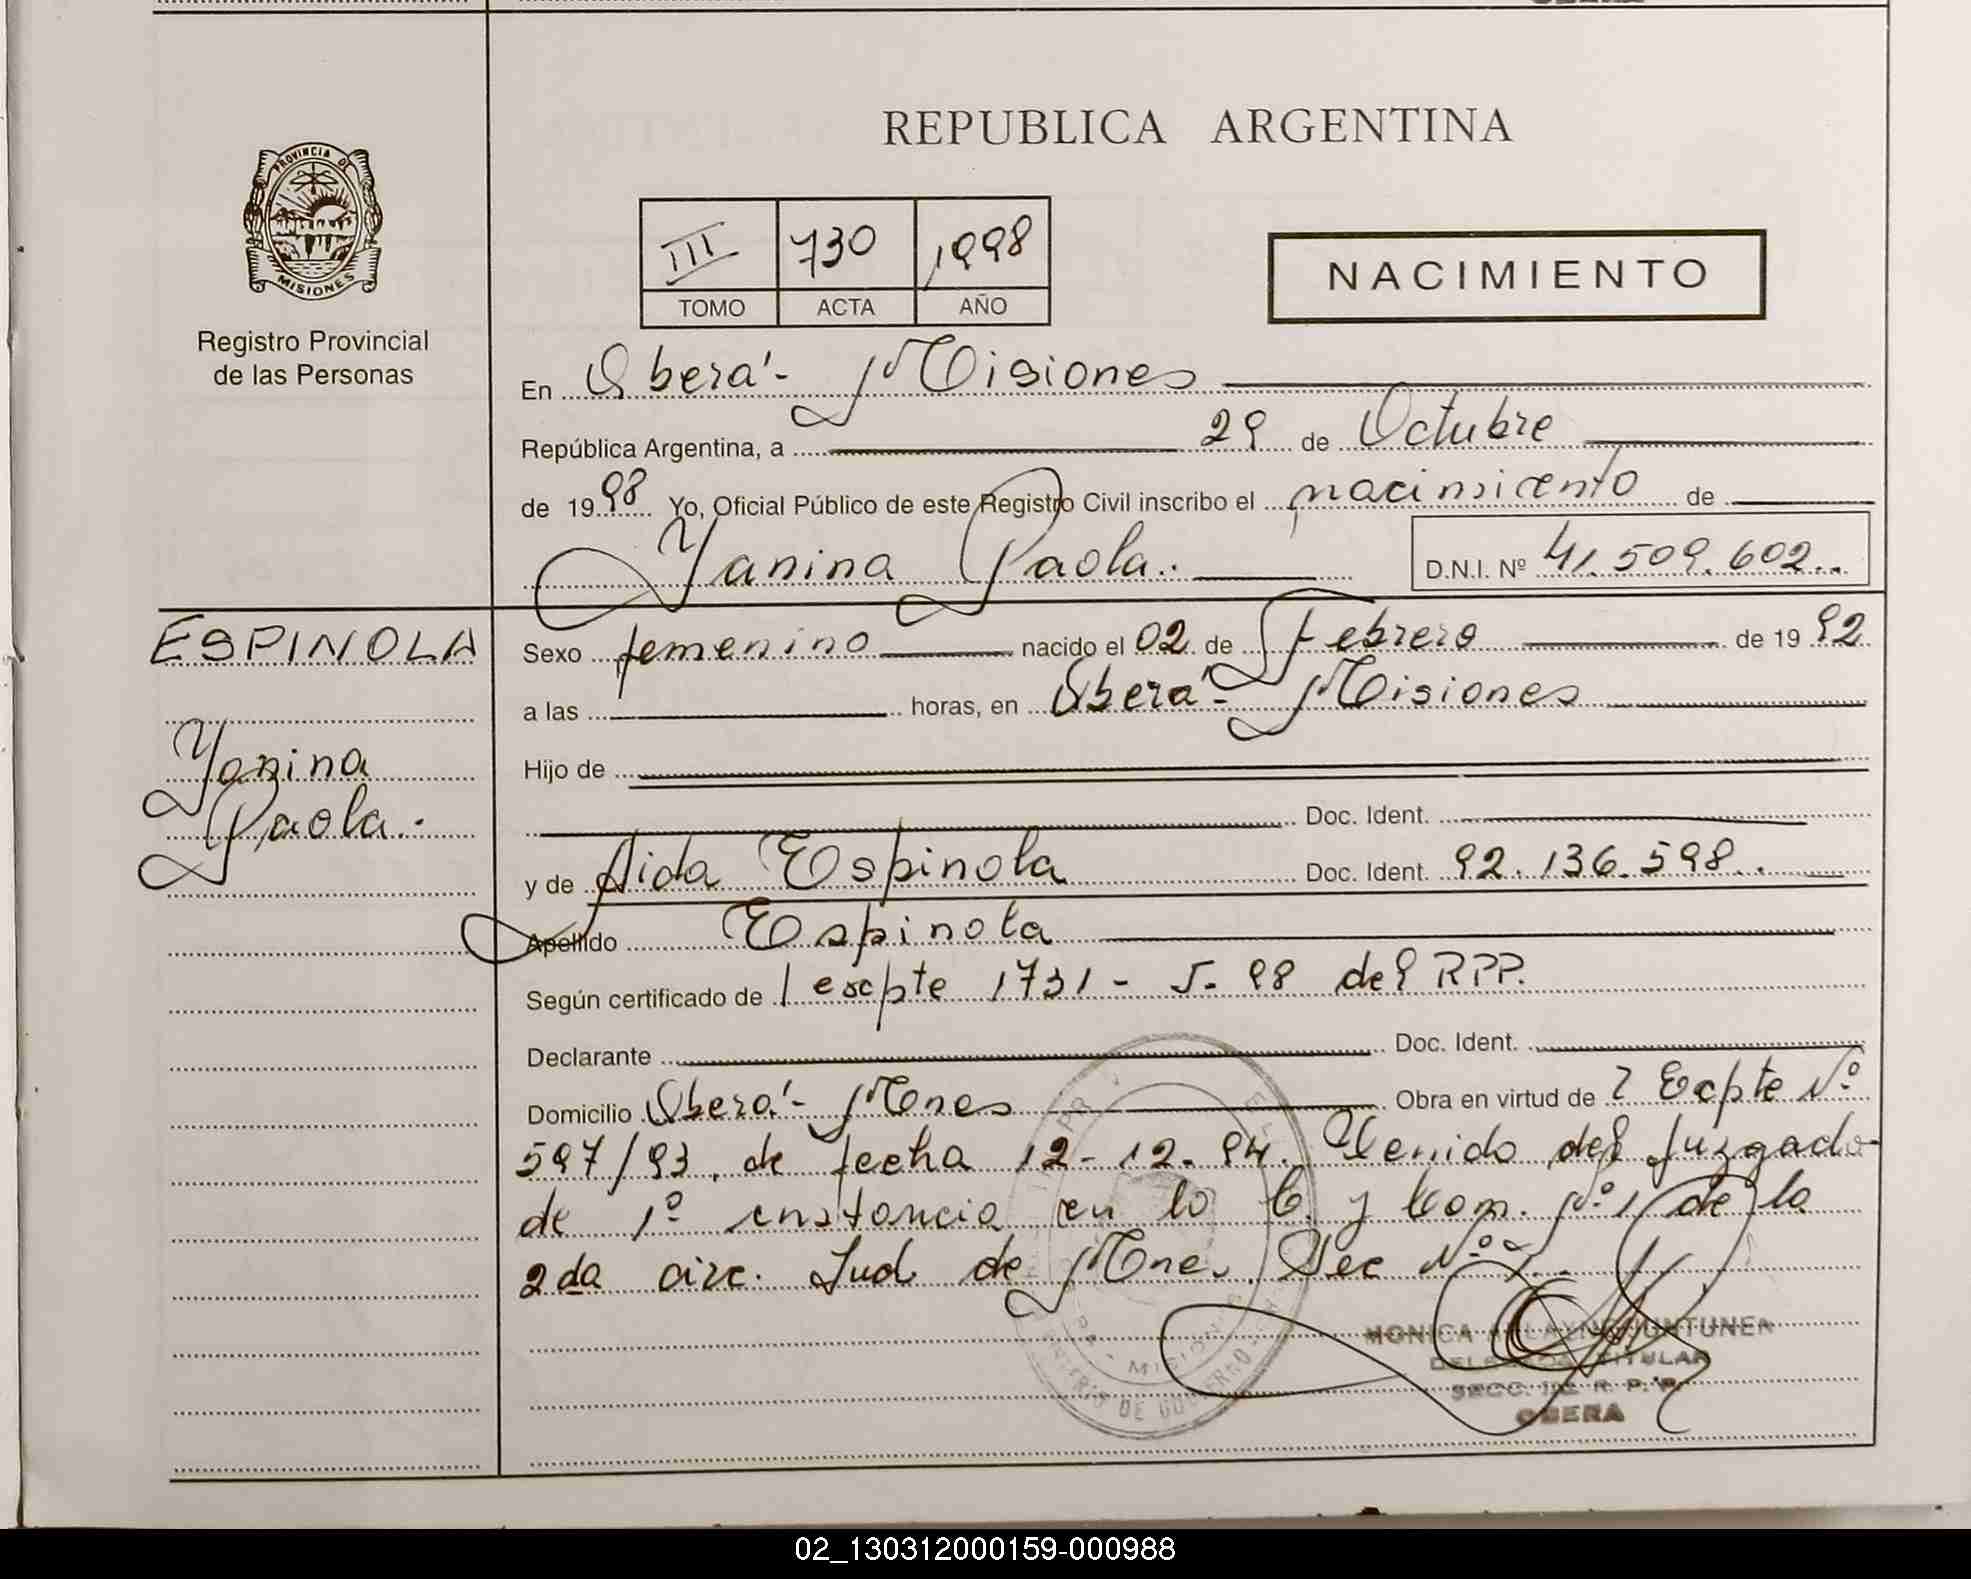 REPUBLICA ARGENTINA
PROVINCIA DE
MISIONES
Registro Provincial
de las Personas
III 730 1998
TOMO ACTA AÑO
NACIMIENTO
En Oberá - Misiones
República Argentina, a 29 de Octubre
de 1998 Yo, Oficial Público de este Registro Civil inscribo el nacimiento de
Yanina Paola.. D.N.I. Nº 41.509.602..
ESPINOLA
Yanina
Paola.-
Sexo femenino nacido el 02 de Febrero de 1992
a las horas, en Oberá - Misiones
Hijo de
Doc. Ident.
y de Aida Espinola Doc. Ident. 92.136.598..
Apellido Espinola
Según certificado de expte 1731 - J- 98 del RPP.
Declarante Doc. Ident.
Domicilio Oberá - Mones Obra en virtud de Ecpte Nº
597/93, de fecha 12-12-94. Venido del Juzgado
de 1º instancia en lo C. y Com. Nº 1 de la
2da circ. Jud. de Mnes. Sec Nº
MISIONES
DE GOBIERNO
MONICA
TITULAR
SECC. R. P. P.
OBERA
02_130312000159-000988